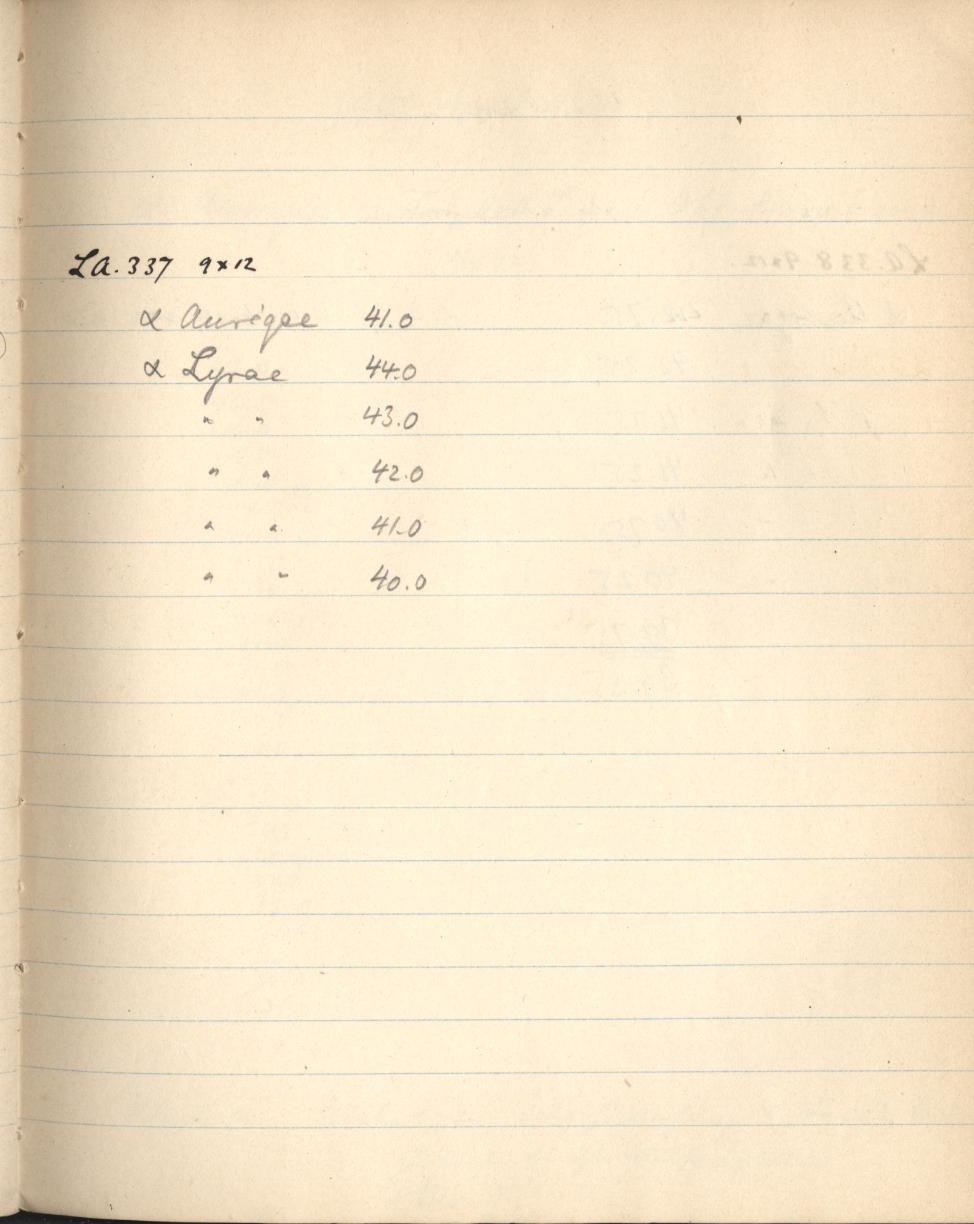 LA.337 9x12
α Aurigae 41.0
α Lyrae 44.0
" " 43.0
" " 42.0
" " 41.0
" " 40.0